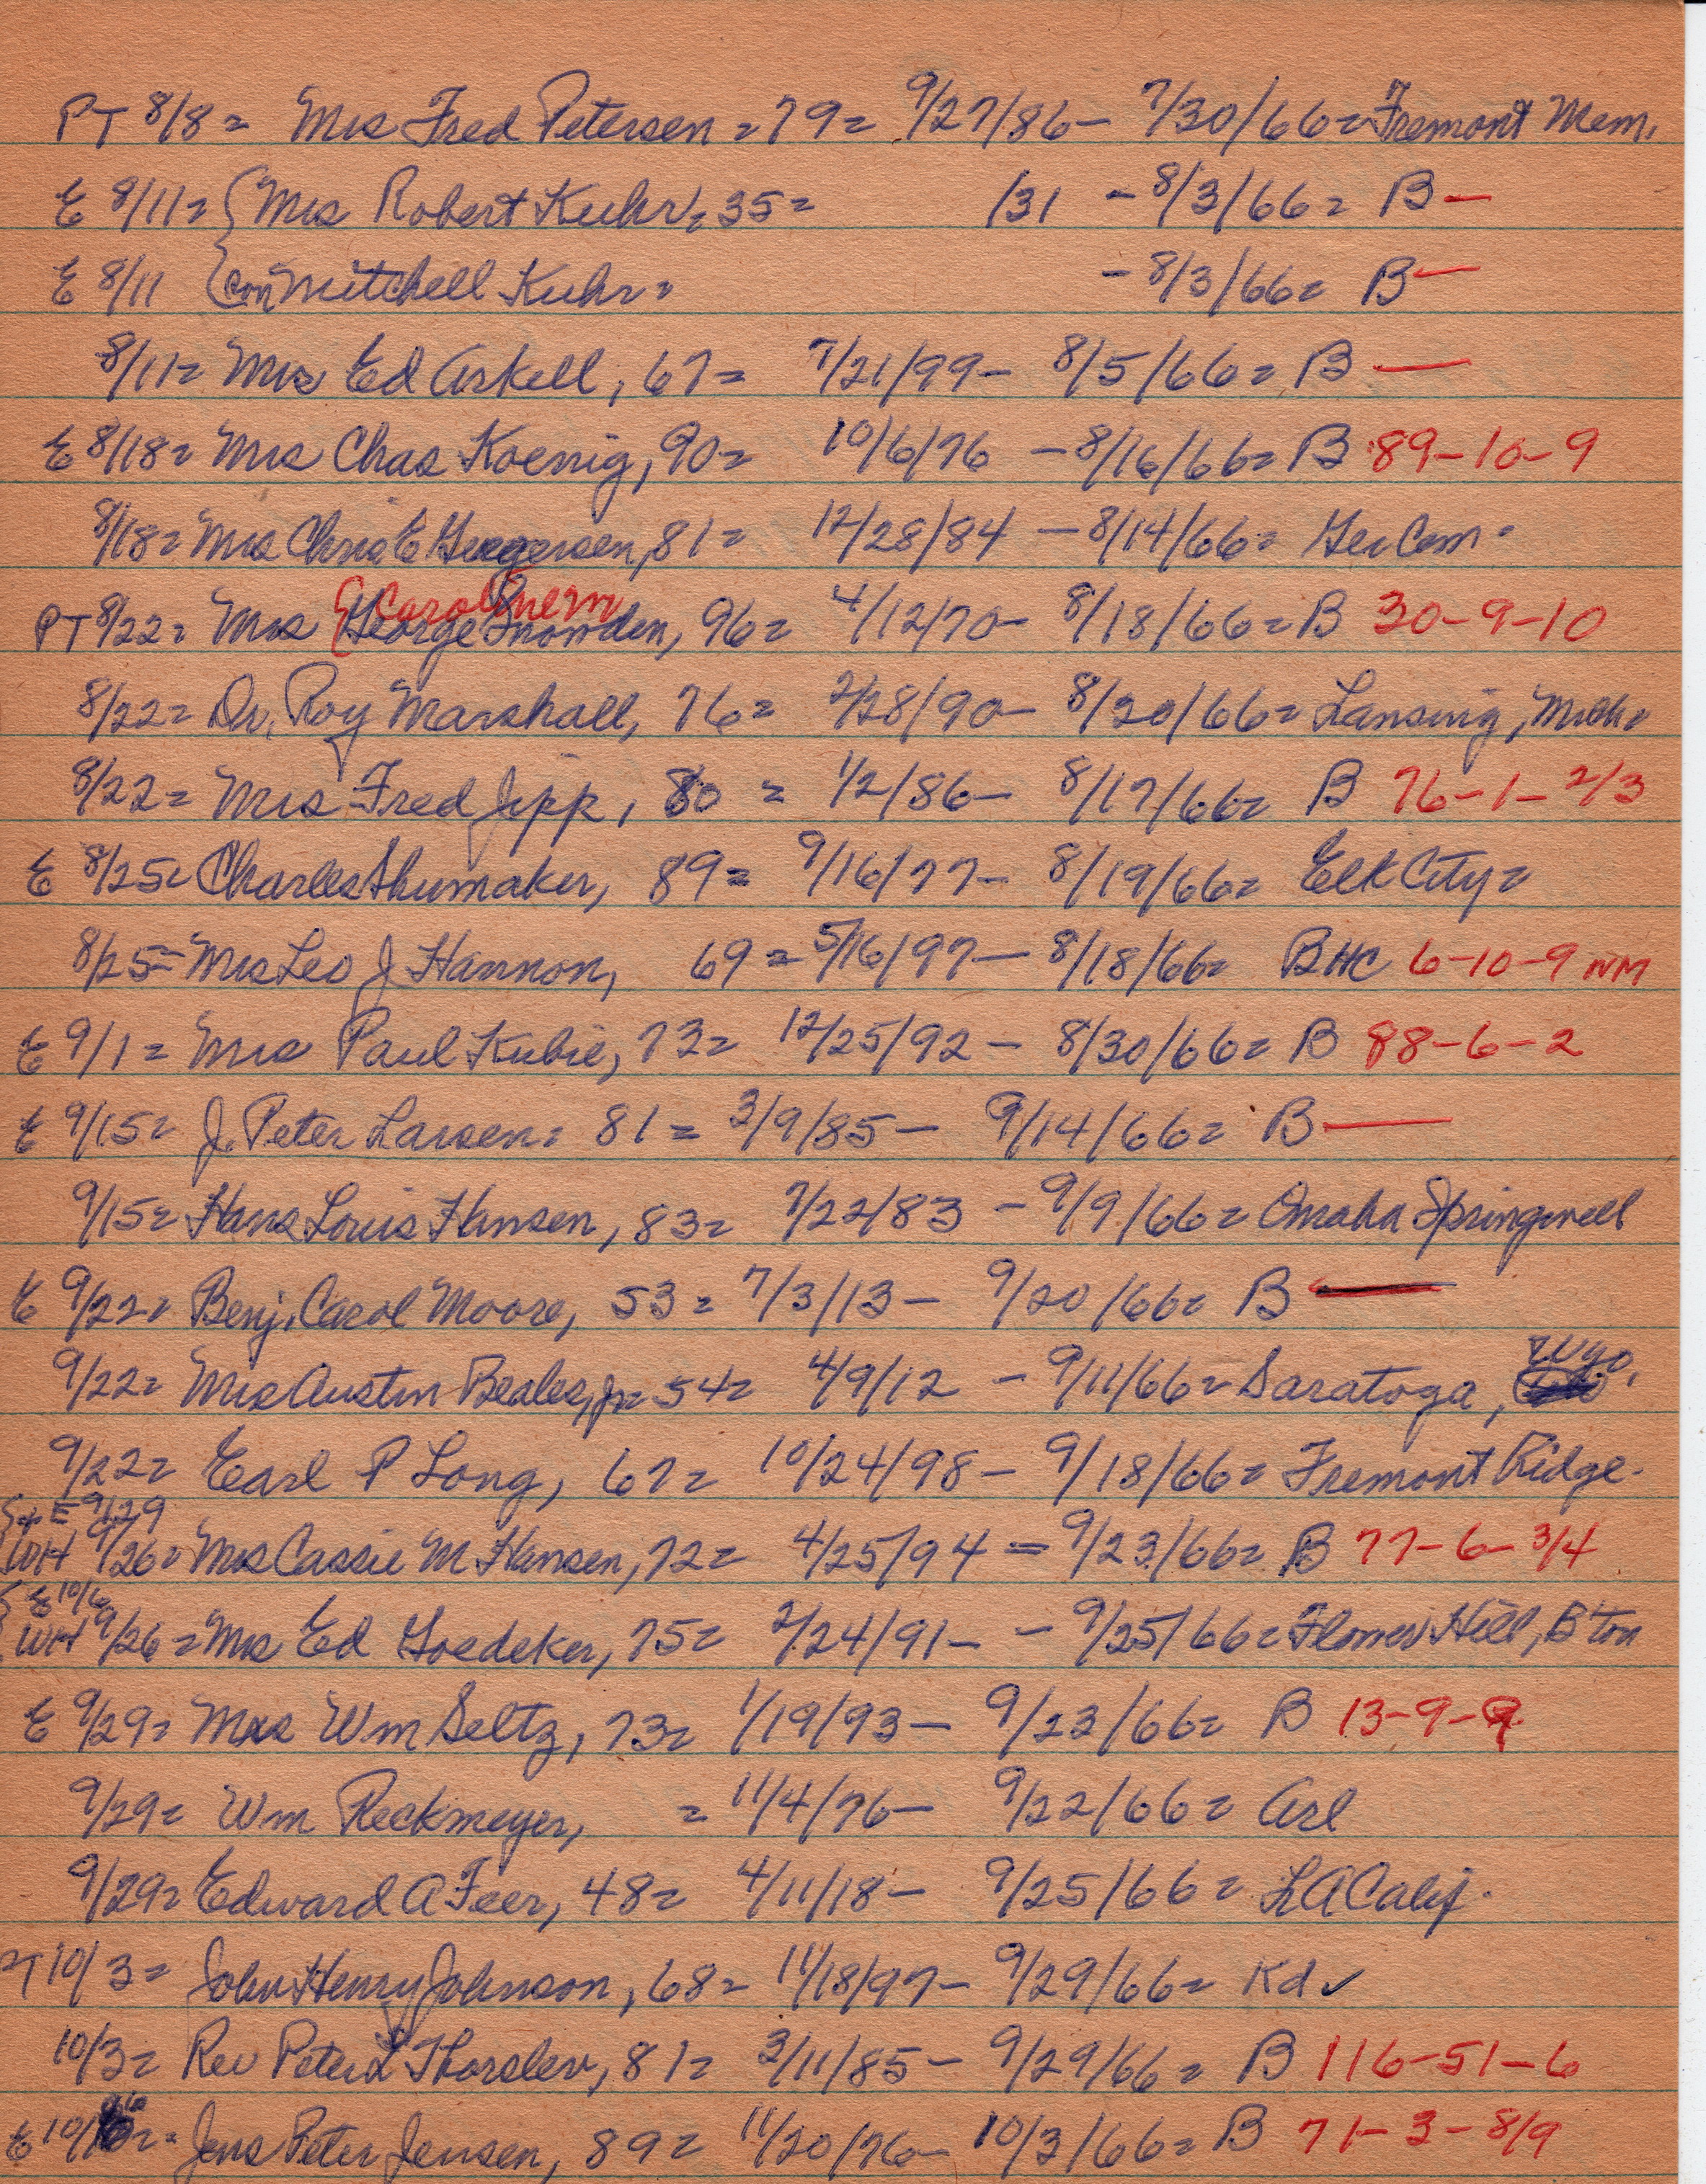 PT 8/8 = Mrs Fred Petersen = 79 = 9/27/86 - 7/30/66 = Fremont Mem.
E 8/11 = { Mrs Robert Kuhr, = 35 = /31 - 8/3/66 = B —
E 8/11 { con Mitchell Kuhr = - 8/3/66 = B —
8/11 = Mrs Ed Askell, 67 = 7/21/99 - 8/5/66 = B —
E 8/18 = Mrs Chas Koenig, 90 = 10/6/76 - 8/16/66 = B 89-10-9
8/18 = Mrs Chris E Gregersen, 81 = 12/28/84 - 8/14/66 = Ger Cem =
{ Caroline M
PT 8/22 = Mrs George Snowden, 96 = 4/12/70 - 8/18/66 = B 30-9-10
8/22 = Dr. Roy Marshall, 76 = 2/28/90 - 8/20/66 = Lansing, Mich =
8/22 = Mrs Fred Jipp, 80 = 1/2/86 - 8/17/66 = B 76-1-2/3
E 8/25 = Charles Shumaker, 89 = 9/16/77 - 8/19/66 = Elk City =
8/25 = Mrs Leo J Hannon, 69 = 5/16/97 - 8/18/66 = BHC 6-10-9 NM
E 9/1 = Mrs Paul Kubie, 73 = 12/25/92 - 8/30/66 = B 88-6-2
E 9/15 = J. Peter Larsen = 81 = 3/9/85 - 9/14/66 = B —
9/15 = Hans Louis Hansen, 83 = 7/22/83 - 9/9/66 = Omaha Springwell
E 9/22 = Benj. Carol Moore, 53 = 7/3/13 - 9/20/66 = B —
9/22 = Mrs Austin Beales, Jr = 54 = 4/9/12 - 9/11/66 = Saratoga, Wyo.
9/22 = Earl P Long, 67 = 10/24/98 - 9/18/66 = Fremont Ridge -
{ + E 9/29
WH 9/26 = Mrs Cassie M Hansen, 72 = 4/25/94 = 9/23/66 = B 77-6-3/4
{ E 10/6
WH 9/26 = Mrs Ed Goedeker, 75 = 2/24/91 - - 9/25/66 = Flower Hill, B'ton
E 9/29 = Mrs Wm Seltz, 73 = 1/19/93 - 9/23/66 = B 13-9-9
9/29 = Wm Reckmeyer, = 11/4/76 - 9/22/66 = Arl
9/29 = Edward A Feer, 48 = 4/11/18 - 9/25/66 = LA Calif.
PT 10/3 = John Henry Johnson, 68 = 11/18/97 - 9/29/66 = Kd ✓
10/3 = Rev Peter L Thorslev, 81 = 3/11/85 - 9/29/66 = B 116-51-6
E 10/6 = Jens Peter Jensen, 89 = 11/20/76 - 10/3/66 = B 71-3-8/9